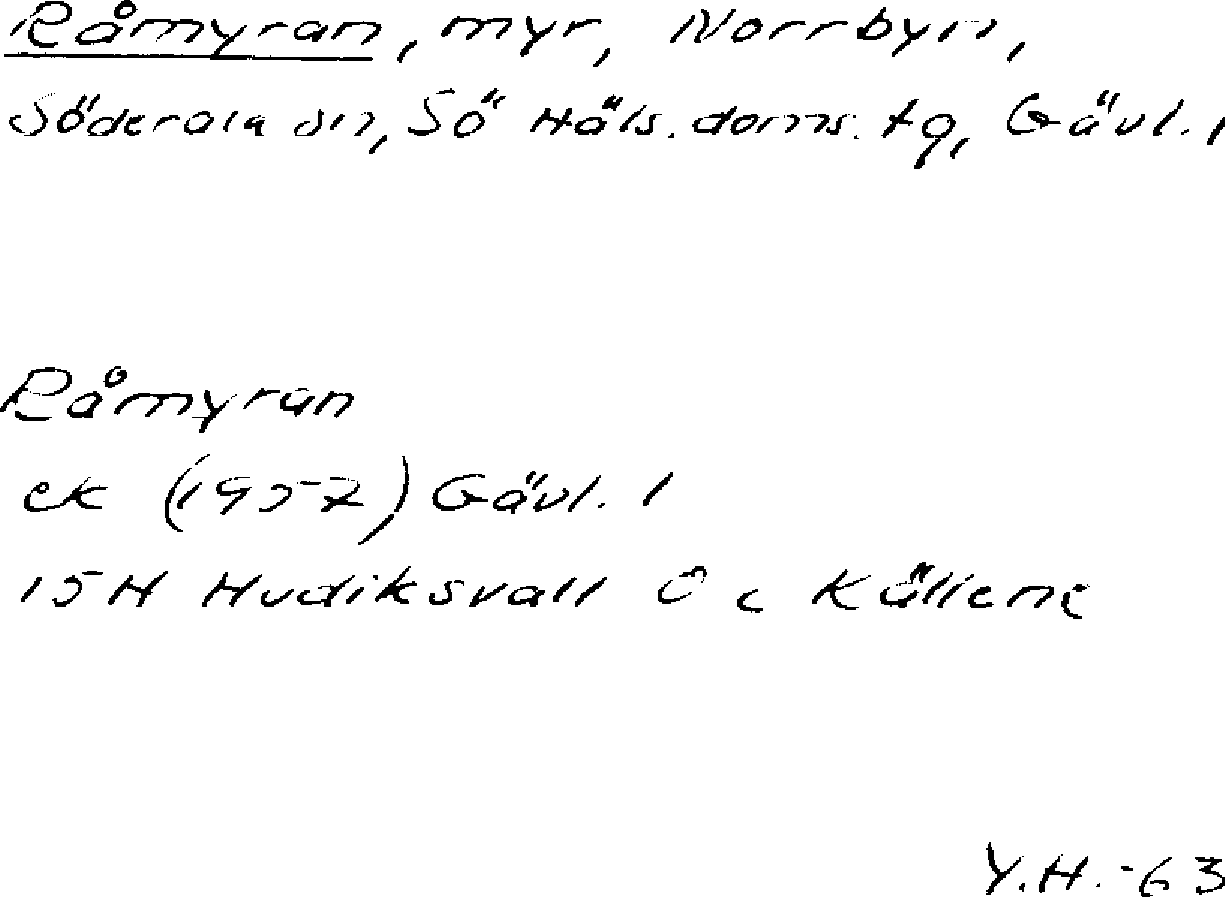 Råmyran, myr, Norrbyn,
Söderala sn, Sö Häls. doms. tg, Gävl. l
Råmyran
ek (1957) Gävl. l
15H Hudiksvall Ö c Källene
Y.H. -63